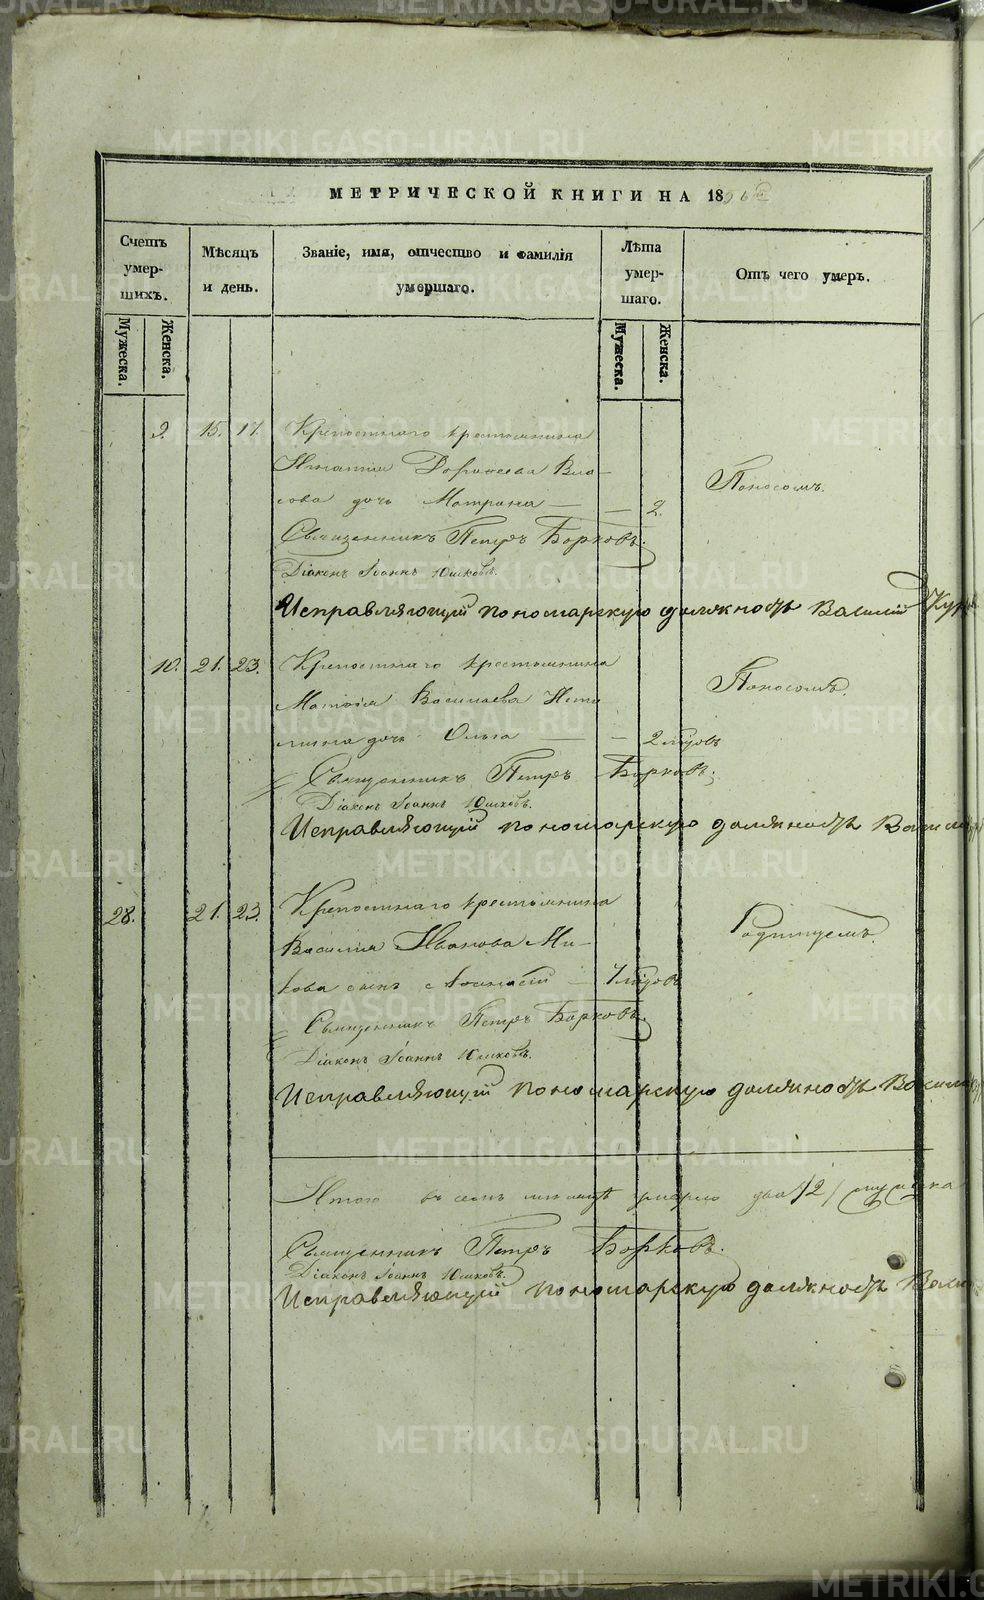 METRIKI.GASO-URAL.RU
МЕТРИЧЕСКОЙ КНИГИ НА 18
Счетъ умер-шихъ.
Мужеска.
Женска.
Мѣсяцъ и день.
Званіе, имя, отчество и фамилія умершаго.
Лѣта умер-шаго.
Мужеска.
Женска.
Отъ чего умеръ.
9. 15. 17. Крепостнаго крестьянина
Игнатия Дорофеева Вла-
сова дочь Матрона — — 2. Поносомъ.
Священникъ Петръ Борковъ.
Діаконъ Іоаннъ Юшковъ.
Исправляющій пономарскую должность Василій
10. 21. 23. Крепостнаго крестьянина
Васильева Поносомъ.
дочь Ольга — — 2 годовъ
Священникъ Петръ Борковъ.
Діаконъ Іоаннъ Юшковъ.
Исправляющій пономарскую должность
28. 21. 23. Крепостнаго крестьянина
Василия Иванова Ми- Родимцемъ.
кова сынъ —
Священникъ Петръ Борковъ.
Діаконъ Іоаннъ Юшковъ.
Исправляющій пономарскую должность
Итого въ семъ месяцѣ умерло два /2/
Священникъ Петръ Борковъ.
Діаконъ Іоаннъ Юшковъ.
Исправляющій пономарскую должность